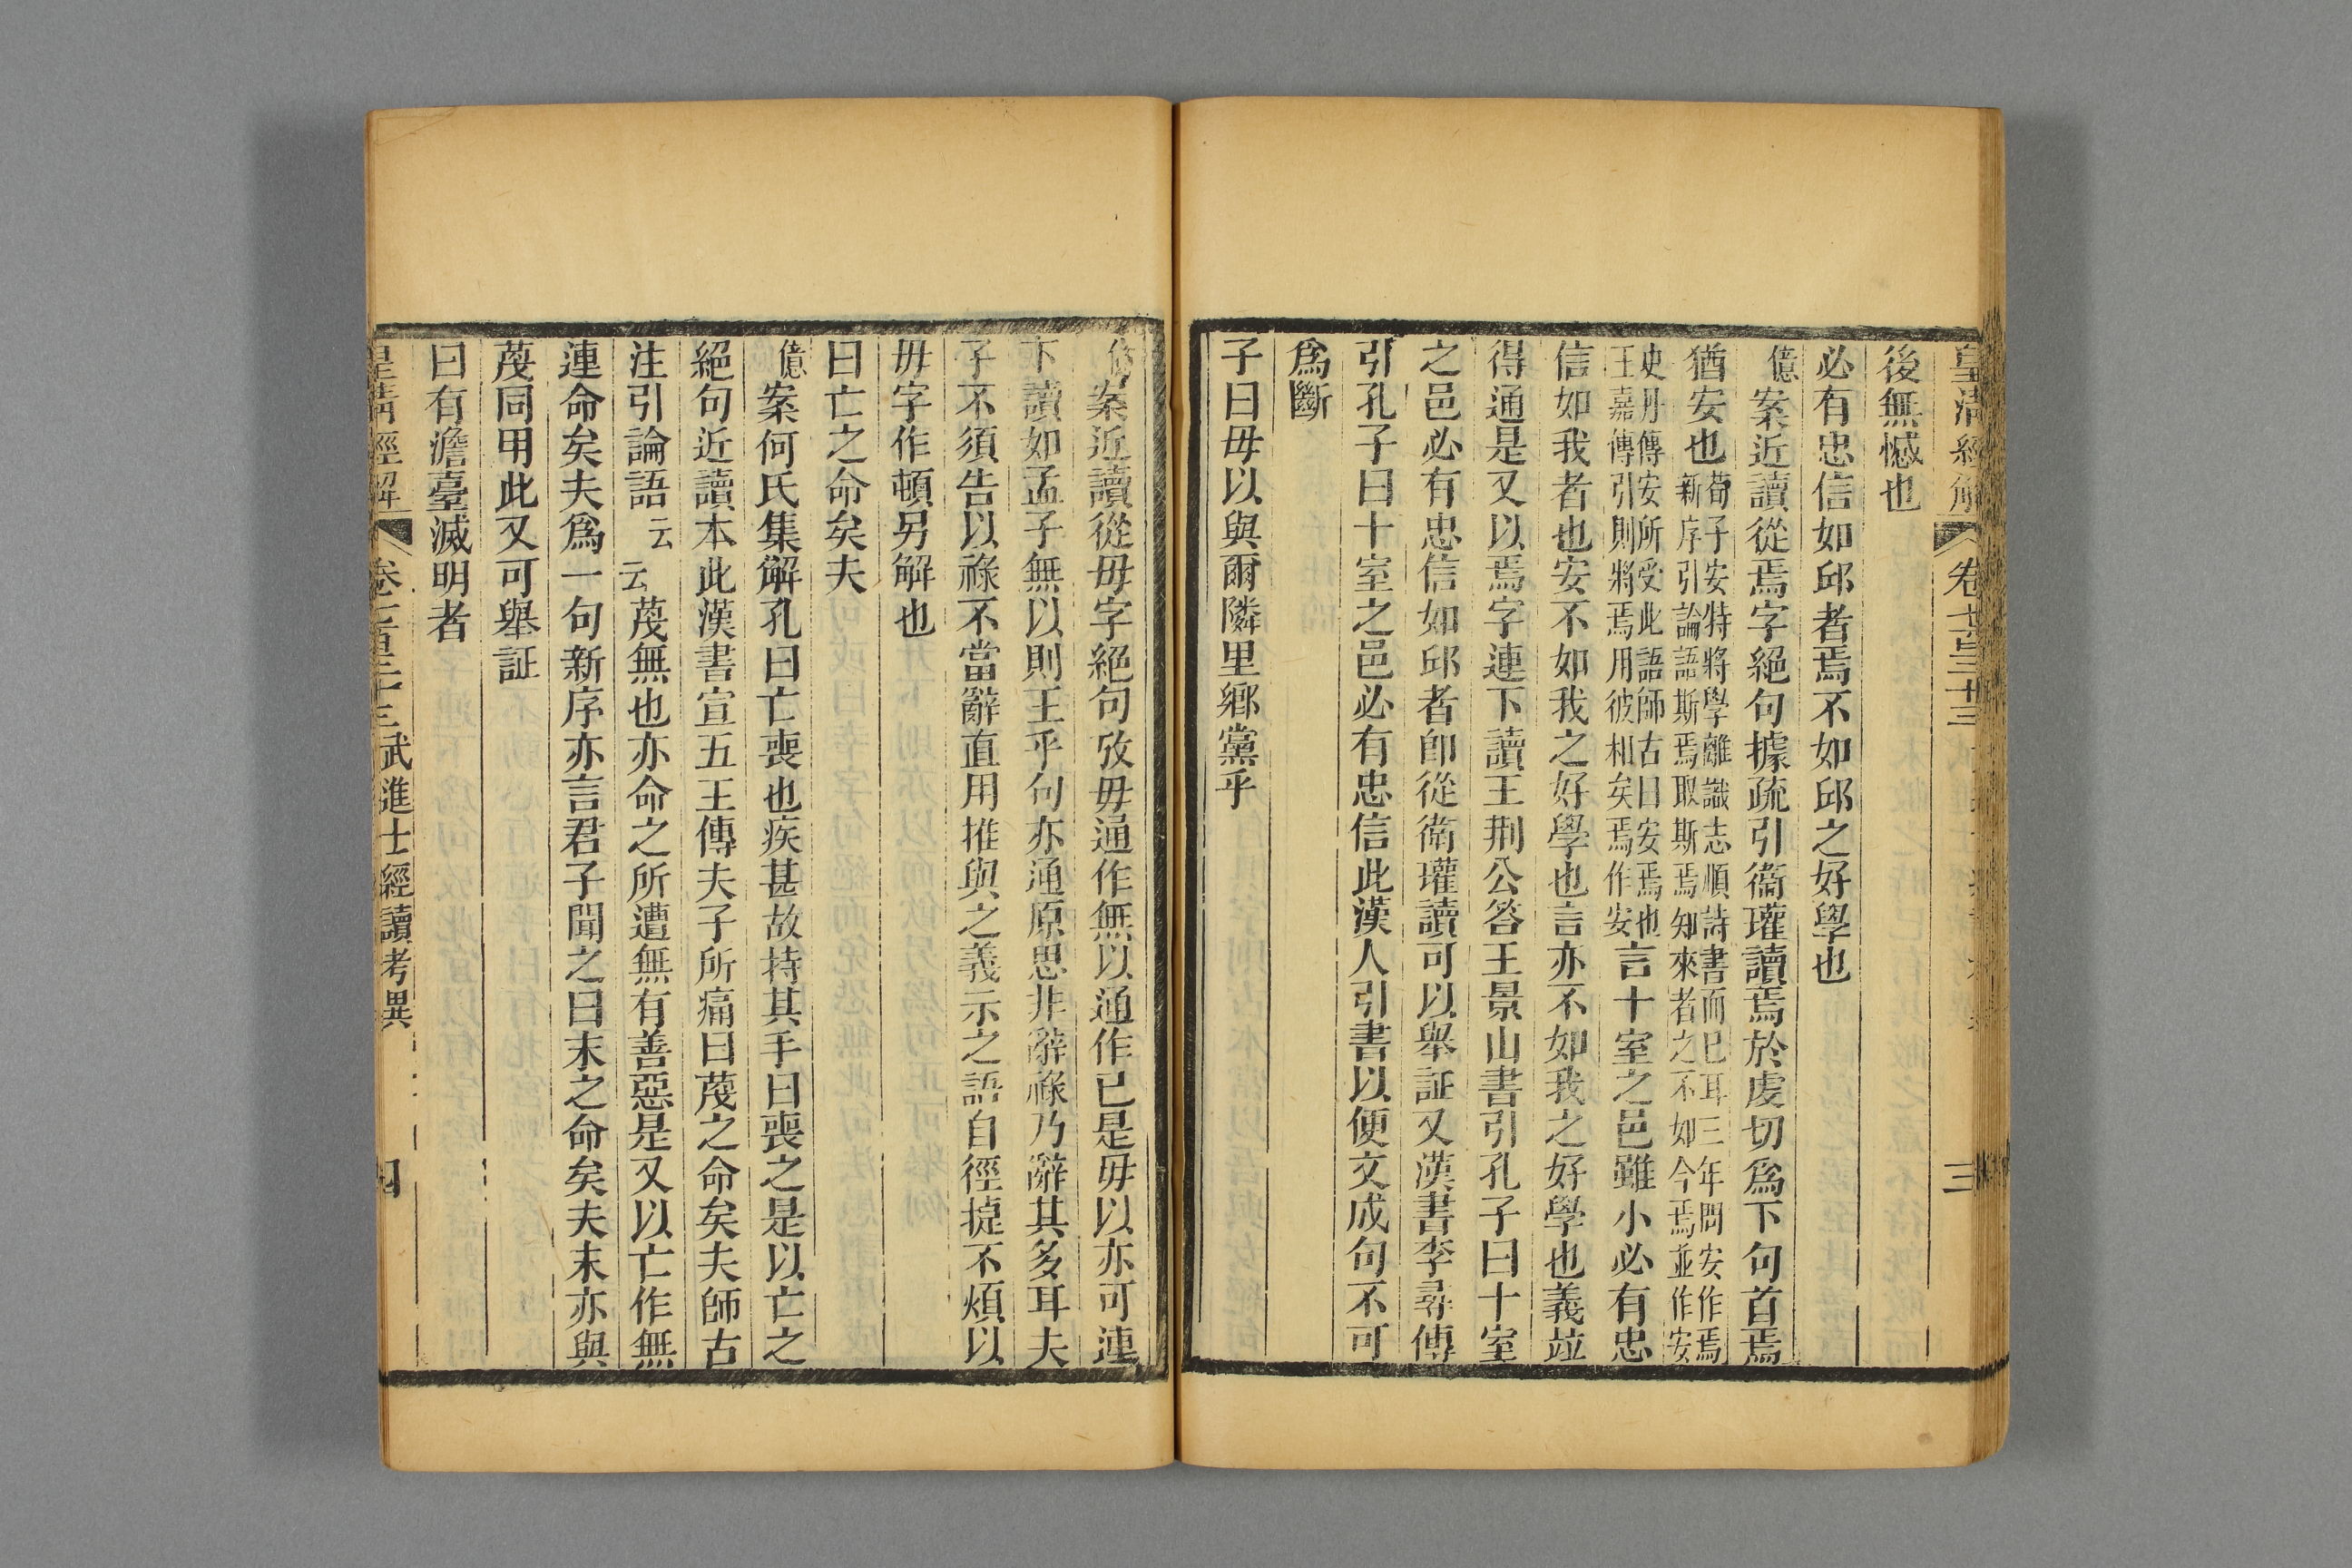 皇清經解 卷七百二十三 三
後無憾也
必有忠信如邱者焉不如邱之好學也
億案近讀從焉字絕句據疏引衞瓘讀焉於虔切爲下句首焉
猶安也荀子安特將學雜識志順詩書而已耳三年問安作焉
新序引論語斯焉取斯焉知來者之不如今焉並作安
史丹傳安所受此語師古曰安焉也
王嘉傳引則將焉用彼相矣焉作安言十室之邑雖小必有忠
信如我者也安不如我之好學也言亦不如我之好學也義竝
得通是又以焉字連下讀王荆公答王景山書引孔子曰十室
之邑必有忠信如邱者卽從衞瓘讀可以舉証又漢書李尋傳
引孔子曰十室之邑必有忠信此漢人引書以便文成句不可
爲斷
子曰毋以與爾隣里鄉黨乎
億案近讀從毋字絕句攷毋通作無以通作已是毋以亦可連
下讀如孟子無以則王乎句亦通原思非辭祿乃辭其多耳夫
子不須告以祿不當辭直用推與之義示之語自徑捷不煩以
毋字作頓另解也
曰亡之命矣夫
億案何氏集解孔曰亡喪也疾甚故持其手曰喪之是以亡之
絕句近讀本此漢書宣五王傳夫子所痛曰蔑之命矣夫師古
注引論語云云蔑無也亦命之所遭無有善惡是又以亡作無
連命矣夫爲一句新序亦言君子聞之曰末之命矣夫末亦與
蔑同用此又可舉証
曰有澹臺滅明者
皇清經解 卷七百二十三 武進士經讀考異 四